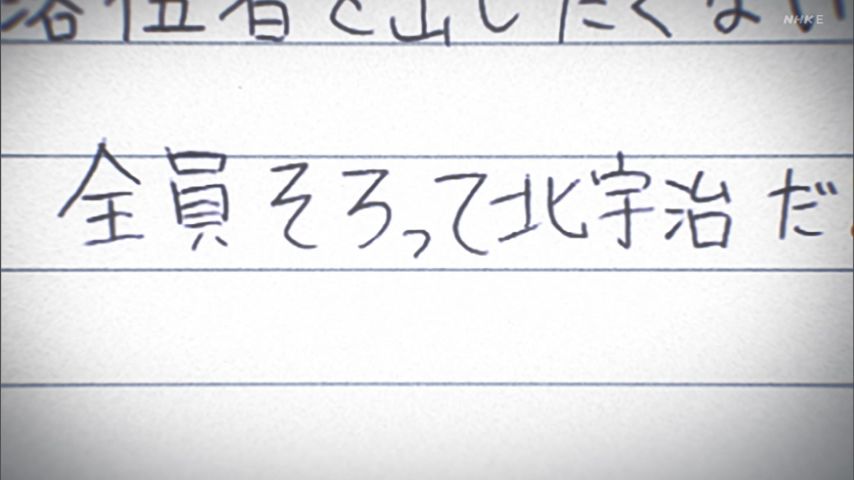 NHKE
落伍者を出したくない
全員そろって北宇治だ